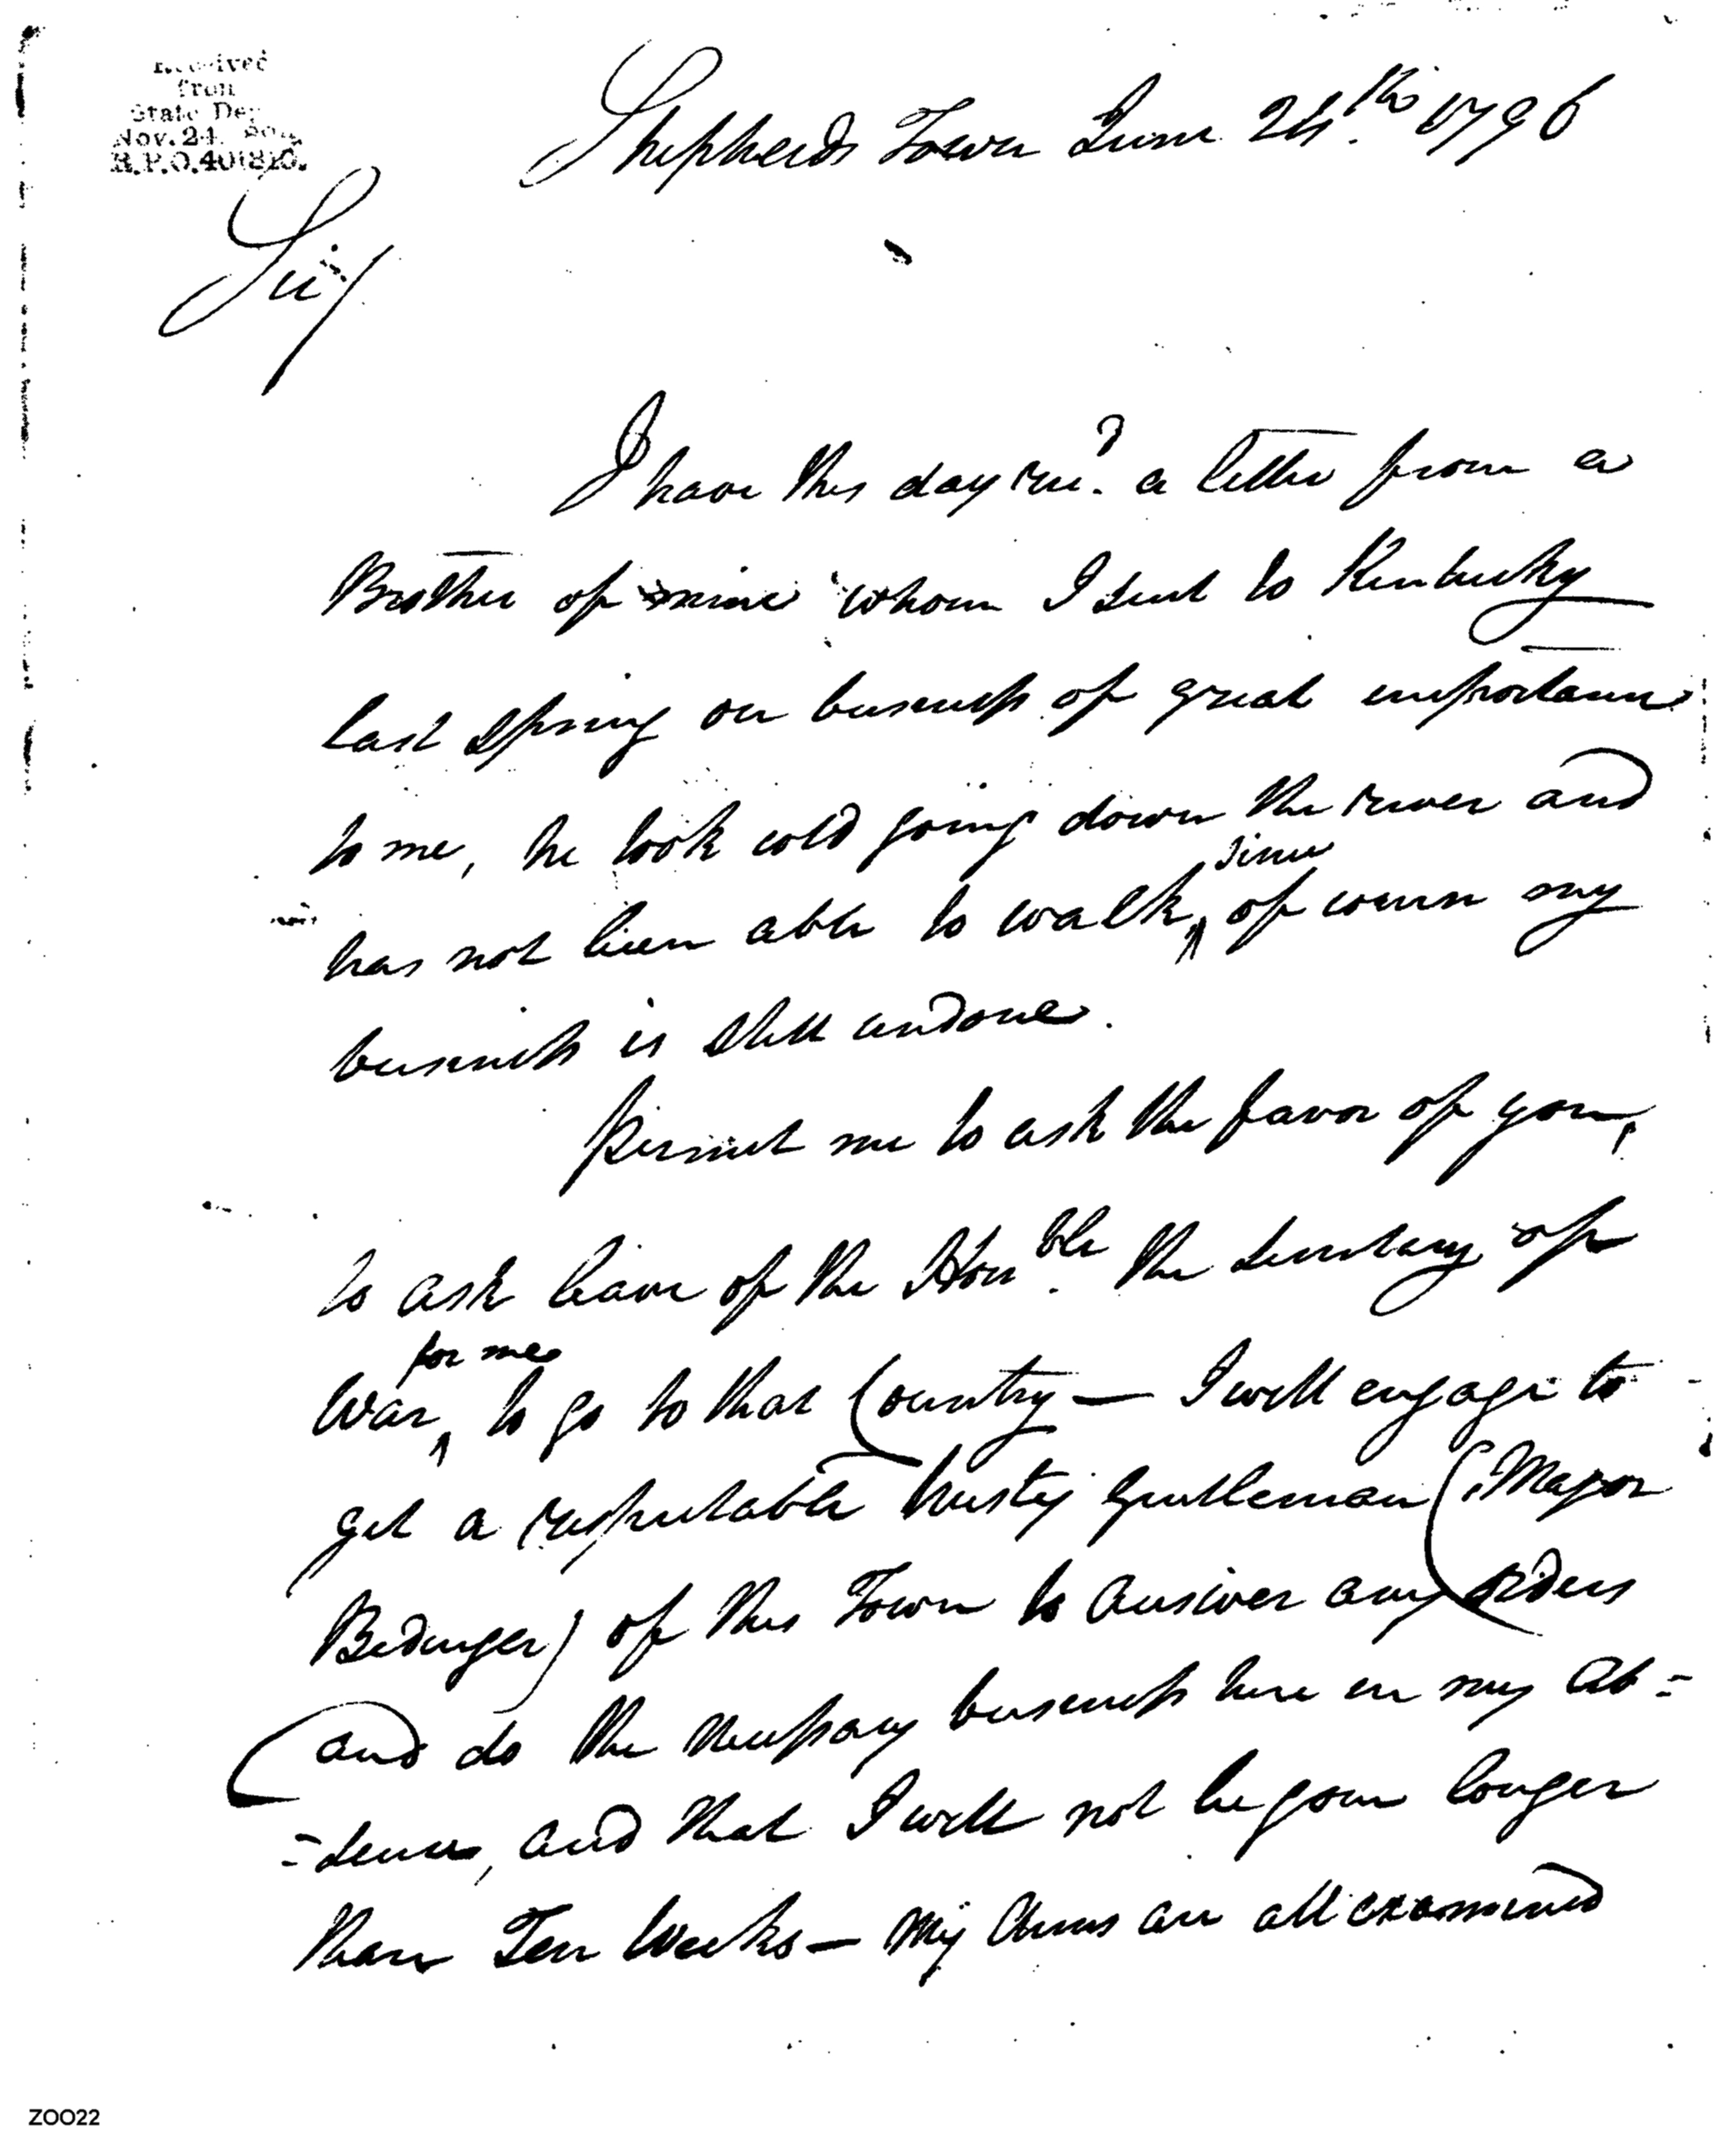 Received
from
State Dep
Nov. 24.
R.P.O. 401810.
Shepherds Town June 24.th 1796
Sir/
I have this day rec.d a letter from a
Brother of mine whom I sent to Kentucky
last spring on business of great importance
to me, he took cold going down the river and
since
has not been able to walk, of course my
business is still undone.
Permit me to ask the favor of you,
to ask leave of the Hon.ble the Secretary of
for me
War, to go to that Country — I will engage to
get a respectable trusty gentleman (Major
Bedinger) of this Town to answer any orders
and do the necessary business here in my ab=
=sence, and that I will not be gone longer
than Ten Weeks — My Arms are all examined
Z0022